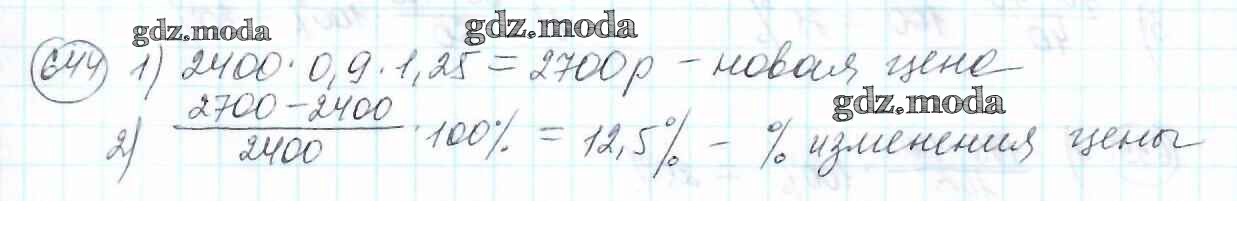 gdz.moda gdz.moda
644 1) 2400 · 0,9 · 1,25 = 2700 р – новая цена
gdz.moda
2) (2700 – 2400)/2400 · 100% = 12,5% – % изменения цены